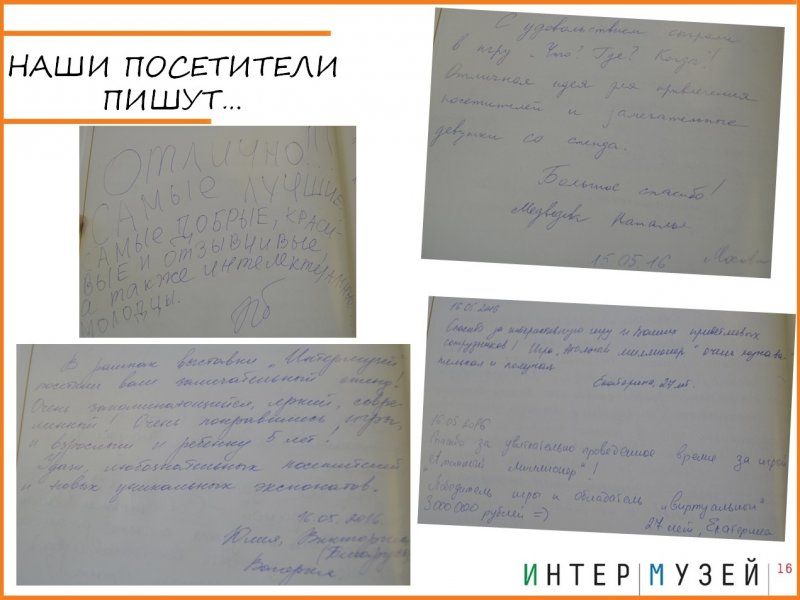 НАШИ ПОСЕТИТЕЛИ
ПИШУТ...
ОТЛИЧНО!!!
САМЫЕ ЛУЧШИЕ,
САМЫЕ ДОБРЫЕ, КРАСИ-
ВЫЕ И ОТЗЫВЧИВЫЕ
а также интелектуальные
МОЛОДЦЫ.
С удовольствием сыграли
в игру „Что? Где? Когда"!
Отличная идея для привлечения
посетителей и замечательные
девушки со стенда.
Большое спасибо!
Медведева Наталья
15.05.16 Москва
В рамках выставки „Интермузей"
посетили ваш замечательный стенд!
Очень запоминающийся, яркий, совре-
менный! Очень понравились игры,
и взрослым и ребенку 5 лет!
Удачи, любознательных посетителей
и новых уникальных экспонатов.
16.05.2016.
Юлия, Виктория
Валерия
16.05.2016
Спасибо за интерактивную игру и Ваших приветливых
сотрудников! Игра „Атомный миллионер" очень познава-
тельная и полезная
Екатерина, 27 лет.
16.05.2016
Спасибо за увлекательно проведенное время за игрой
"Атомный миллионер"!
Победитель игры и обладатель „виртуальных"
3000 000 рублей =)
27 лет, Екатерина
ИНТЕР|МУЗЕЙ
16